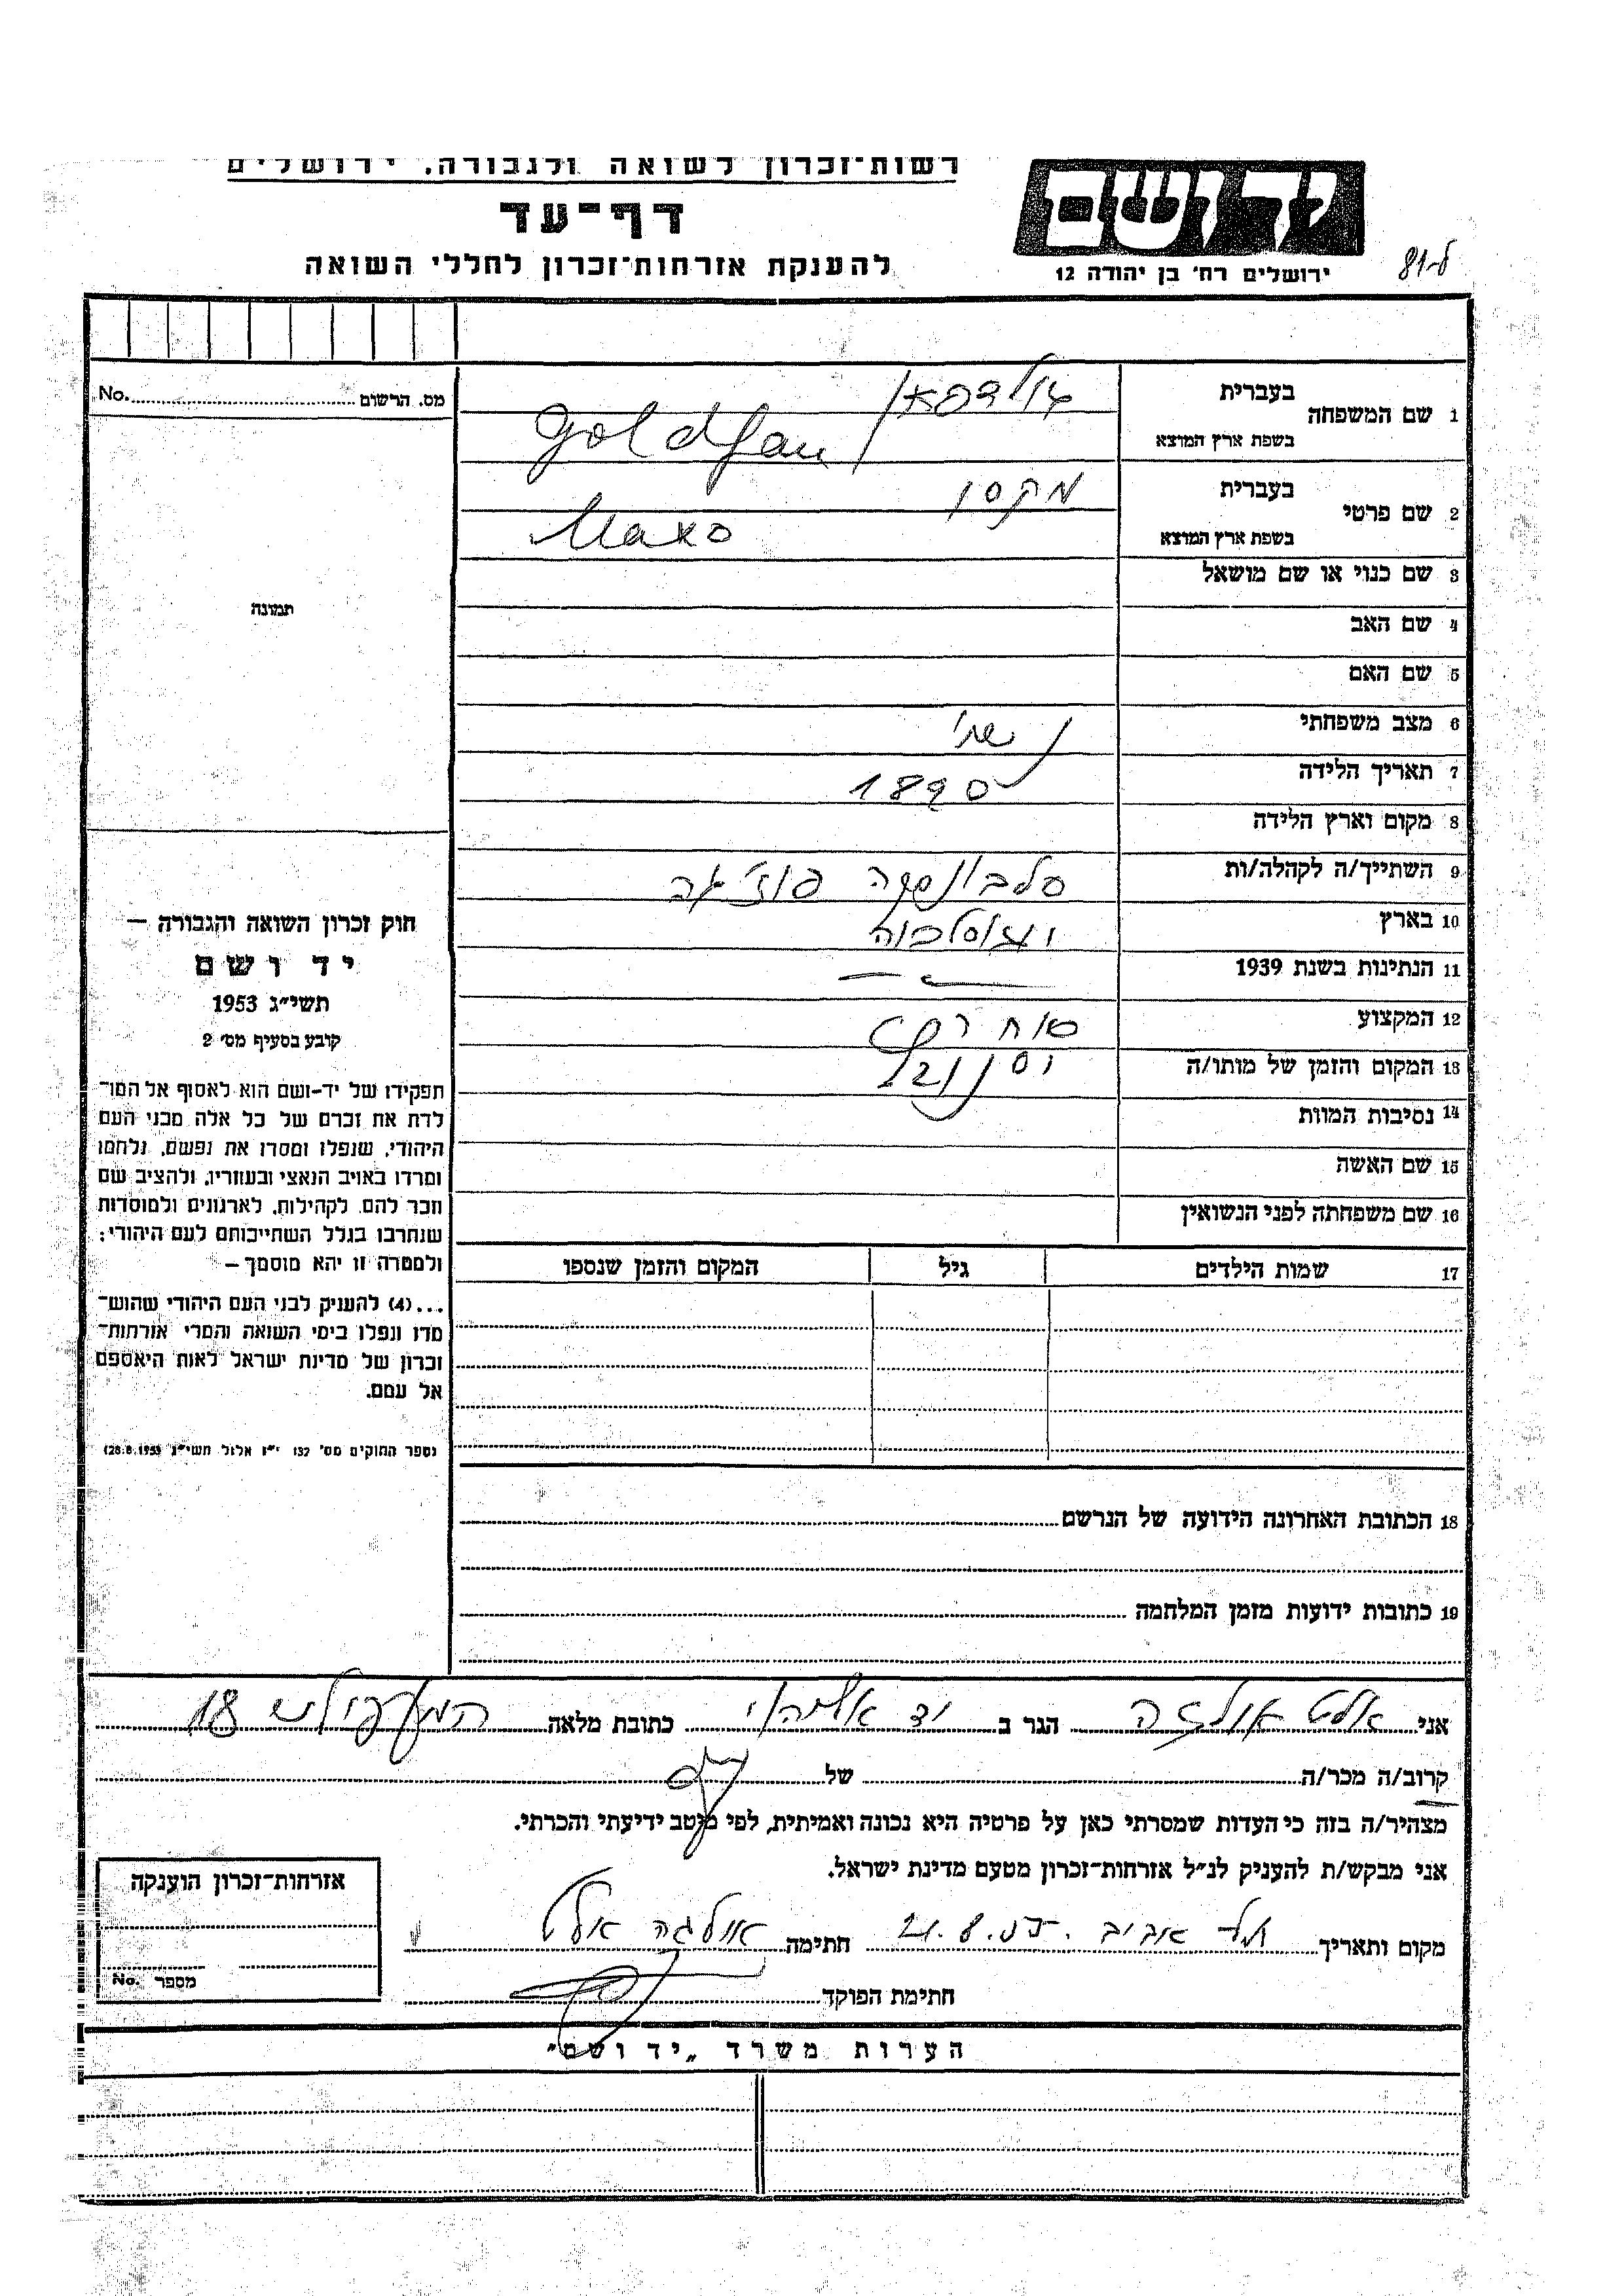 רשות־זכרון לשואה ולגבורה, ירושלים
דף־עד
להענקת אזרחות־זכרון לחללי השואה
יד ושם
ירושלים רח׳ בן יהודה 12
81-ל
מס. הרשום No.
תמונה
1 שם המשפחה
בעברית גולדפאן
בשפת ארץ המוצא Goldfan
2 שם פרטי
בעברית מקסו
בשפת ארץ המוצא Makso
3 שם כנוי או שם מושאל
4 שם האב
5 שם האם
6 מצב משפחתי נשוי
7 תאריך הלידה 1890
8 מקום וארץ הלידה
9 השתייך/ה לקהלה/ות סלבונסקה פוז׳גה
10 בארץ יוגוסלביה
11 הנתינות בשנת 1939 — " —
12 המקצוע סוחר
13 המקום והזמן של מותו/ה
14 נסיבות המוות
15 שם האשה
16 שם משפחתה לפני הנשואין
17 שמות הילדים גיל המקום והזמן שנספו
18 הכתובת האחרונה הידועה של הנרשם
19 כתובות ידועות מזמן המלחמה
חוק זכרון השואה והגבורה —
יד ושם
תשי״ג 1953
קובע בסעיף מס׳ 2
תפקידו של יד-ושם הוא לאסוף אל המו־
לדת את זכרם של כל אלה מבני העם
היהודי, שנפלו ומסרו את נפשם, נלחמו
ומרדו באויב הנאצי ובעוזריו, ולהציב שם
וזכר להם, לקהילות, לארגונים ולמוסדות
שנחרבו בגלל השתייכותם לעם היהודי;
ולמטרה זו יהא מוסמך –
...(4) להעניק לבני העם היהודי שהוש־
מדו ונפלו בימי השואה והמרי אזרחות־
זכרון של מדינת ישראל לאות היאספם
אל עמם.
(ספר החוקים מס׳ 132 י״ז אלול תשי״ג 28.8.1953)
אני אלט אולגה הגר ב יד אליהו כתובת מלאה 18
קרוב/ה מכר/ה של
מצהיר/ה בזה כי העדות שמסרתי כאן על פרטיה היא נכונה ואמיתית, לפי מיטב ידיעתי והכרתי.
אני מבקש/ת להעניק לנ״ל אזרחות־זכרון מטעם מדינת ישראל.
מקום ותאריך תל אביב 21.8.55 חתימה אולגה אלט
חתימת הפוקד
אזרחות־זכרון הוענקה
מספר No.
הערות משרד „יד ושם״